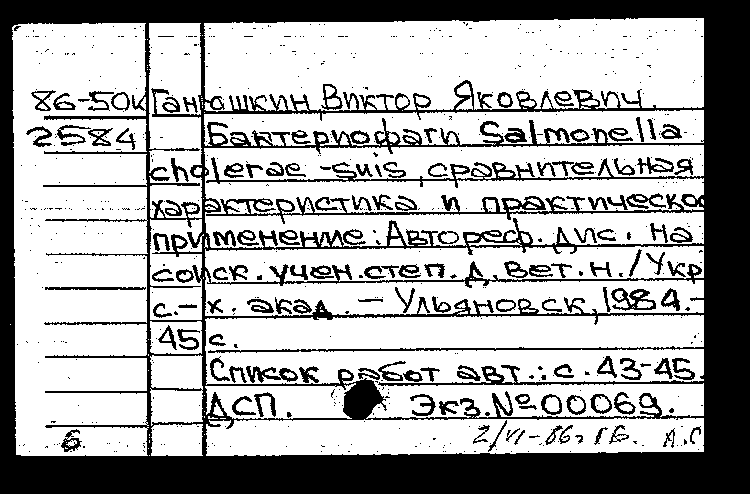 86-50к Ганюшкин, Виктор Яковлевич.
2584 Бактериофаги Salmonella
cholerae-suis, сравнительная
характеристика и практическое
применение: Автореф. дис. на
соиск. учен. степ. д. вет. н. / Укр
с.-х. акад. — Ульяновск, 1984.-
45 с.
Список работ авт.: с. 43-45.
ДСП. Экз. № 00069.
6 2/VI-86г